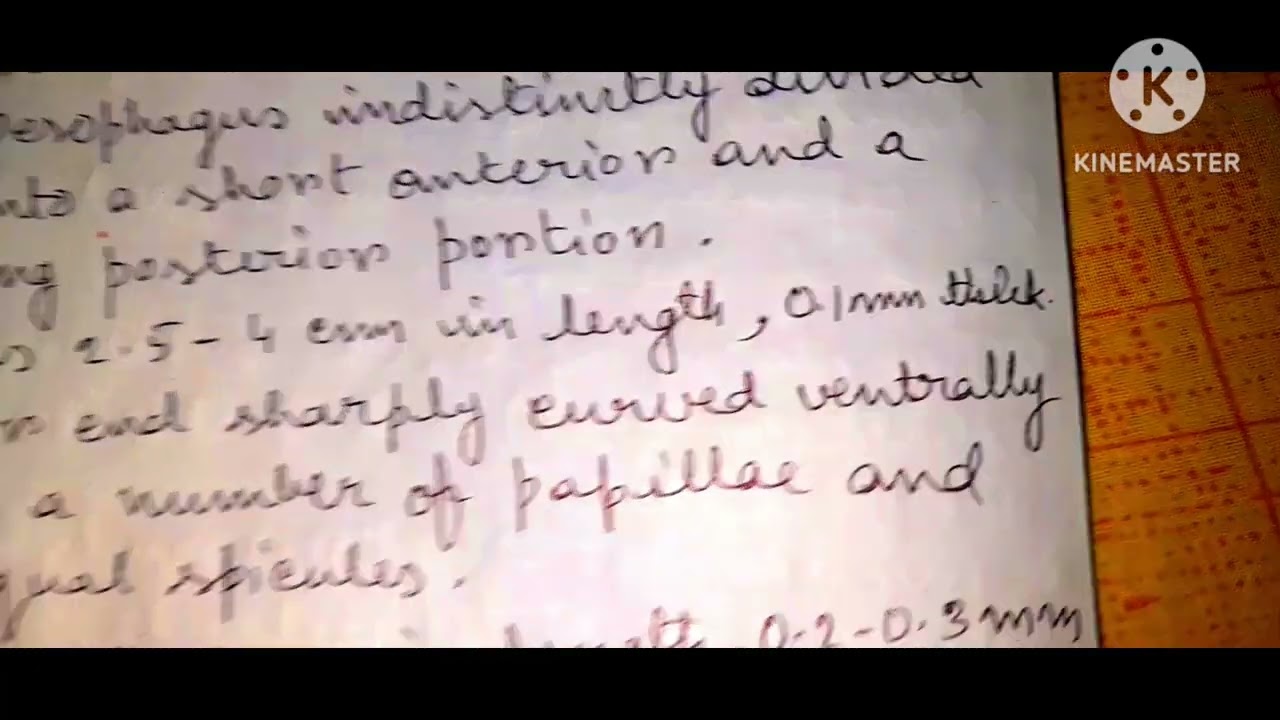 oesophagus indistinctly divided
into a short anterior and a
ng posterior portion.
s 2.5-4 cm in length, 0.1mm thick.
r end sharply curved ventrally
a number of papillae and
qual spicules.
length 0.2-0.3mm
K
KINEMASTER